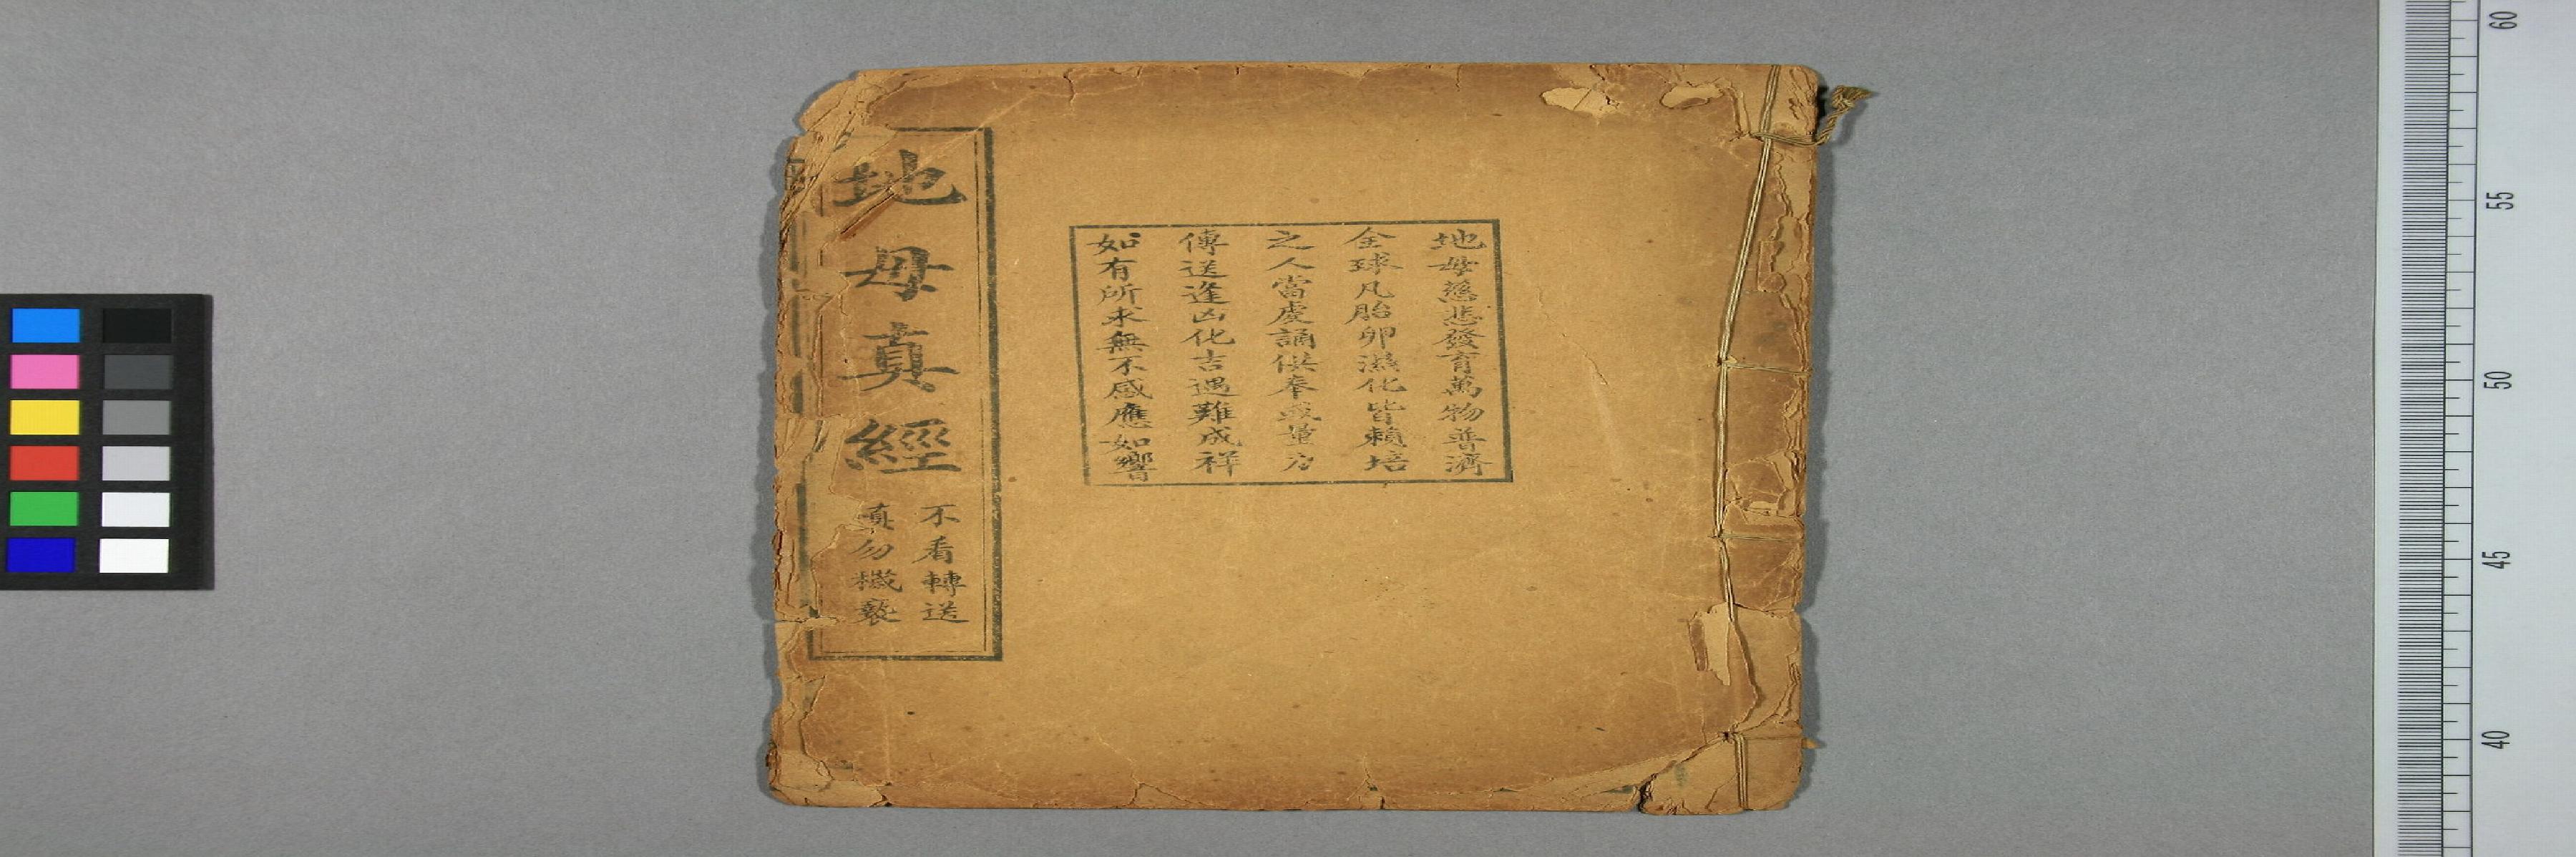 地母慈悲發育萬物普濟
全球凡胎卵濕化皆賴培
之人當虔誦供奉或量力
傳送逢凶化吉遇難成祥
如有所求無不感應如響
地母真經
不看轉送
真勿襪褻
60
55
50
45
40